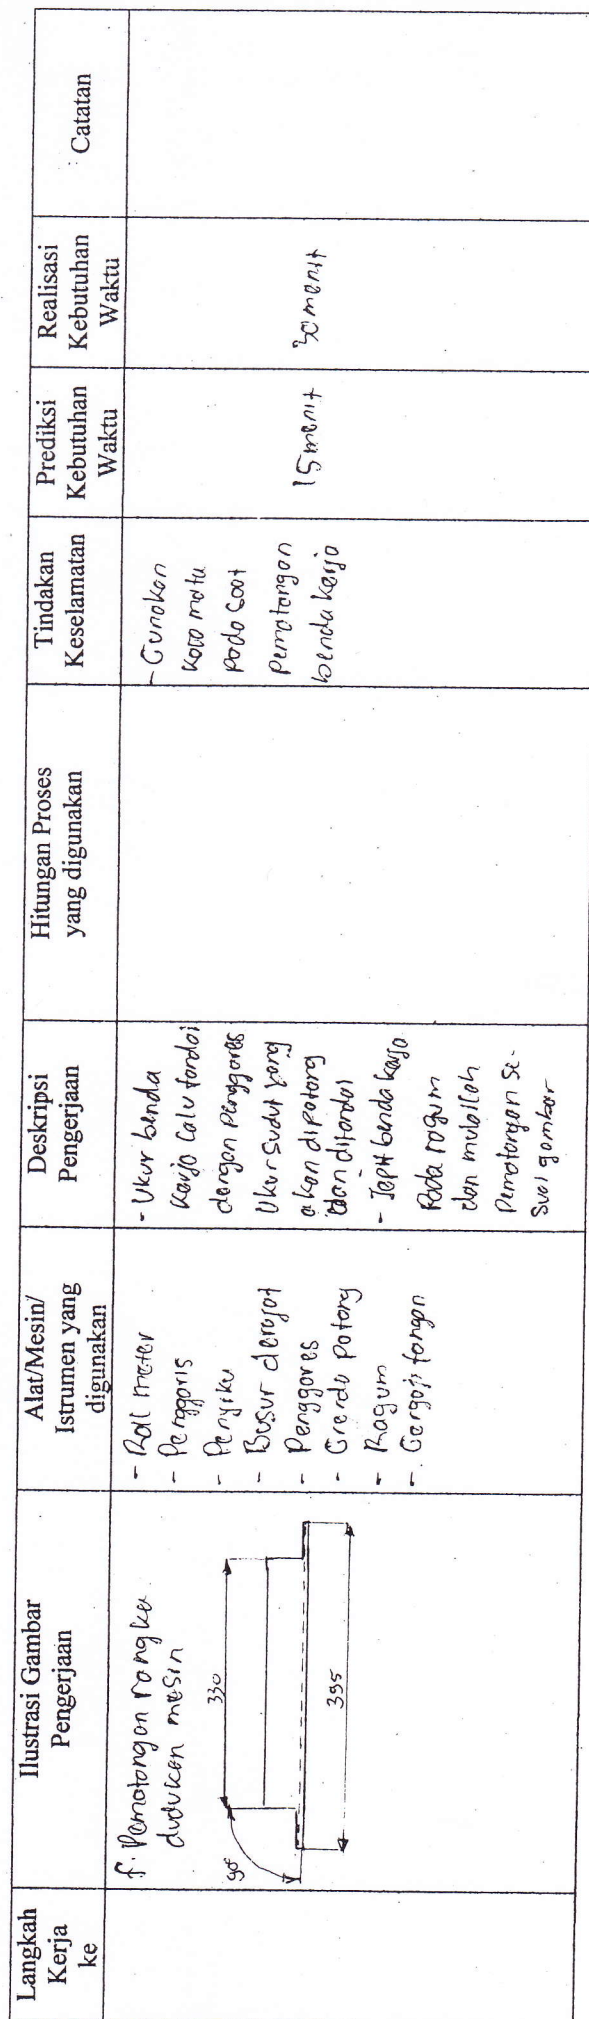 Langkah
Kerja
ke
Ilustrasi Gambar
Pengerjaan
Alat/Mesin/
Istrumen yang
digunakan
Deskripsi
Pengerjaan
Hitungan Proses
yang digunakan
Tindakan
Keselamatan
Prediksi
Kebutuhan
Waktu
Realisasi
Kebutuhan
Waktu
Catatan
f. Pemotongan rangka
dudukan mesin
330
90°
395
- Roll meter
- Penggaris
- Penyiku
- Busur derajat
- Penggores
- Grenda potong
- Ragum
- Gergaji tangan
- Ukur benda
kerja lalu tandai
dengan penggores
Ukur sudut yang
akan dipotong
dan ditandai
- Jepit benda kerja
pada ragum
dan mulailah
pemotongan se-
suai gambar
- Gunakan
kaca mata
pada saat
pemotongan
benda kerja
15 menit
30 menit